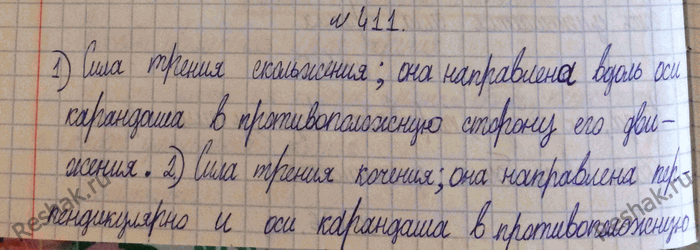 № 411.
1) Сила трения скольжения; она направлена вдоль оси
карандаша в противоположную сторону его дви-
жения. 2) Сила трения качения; она направлена пер-
пендикулярно и оси карандаша в противоположную
Reshak.ru
Reshak.ru